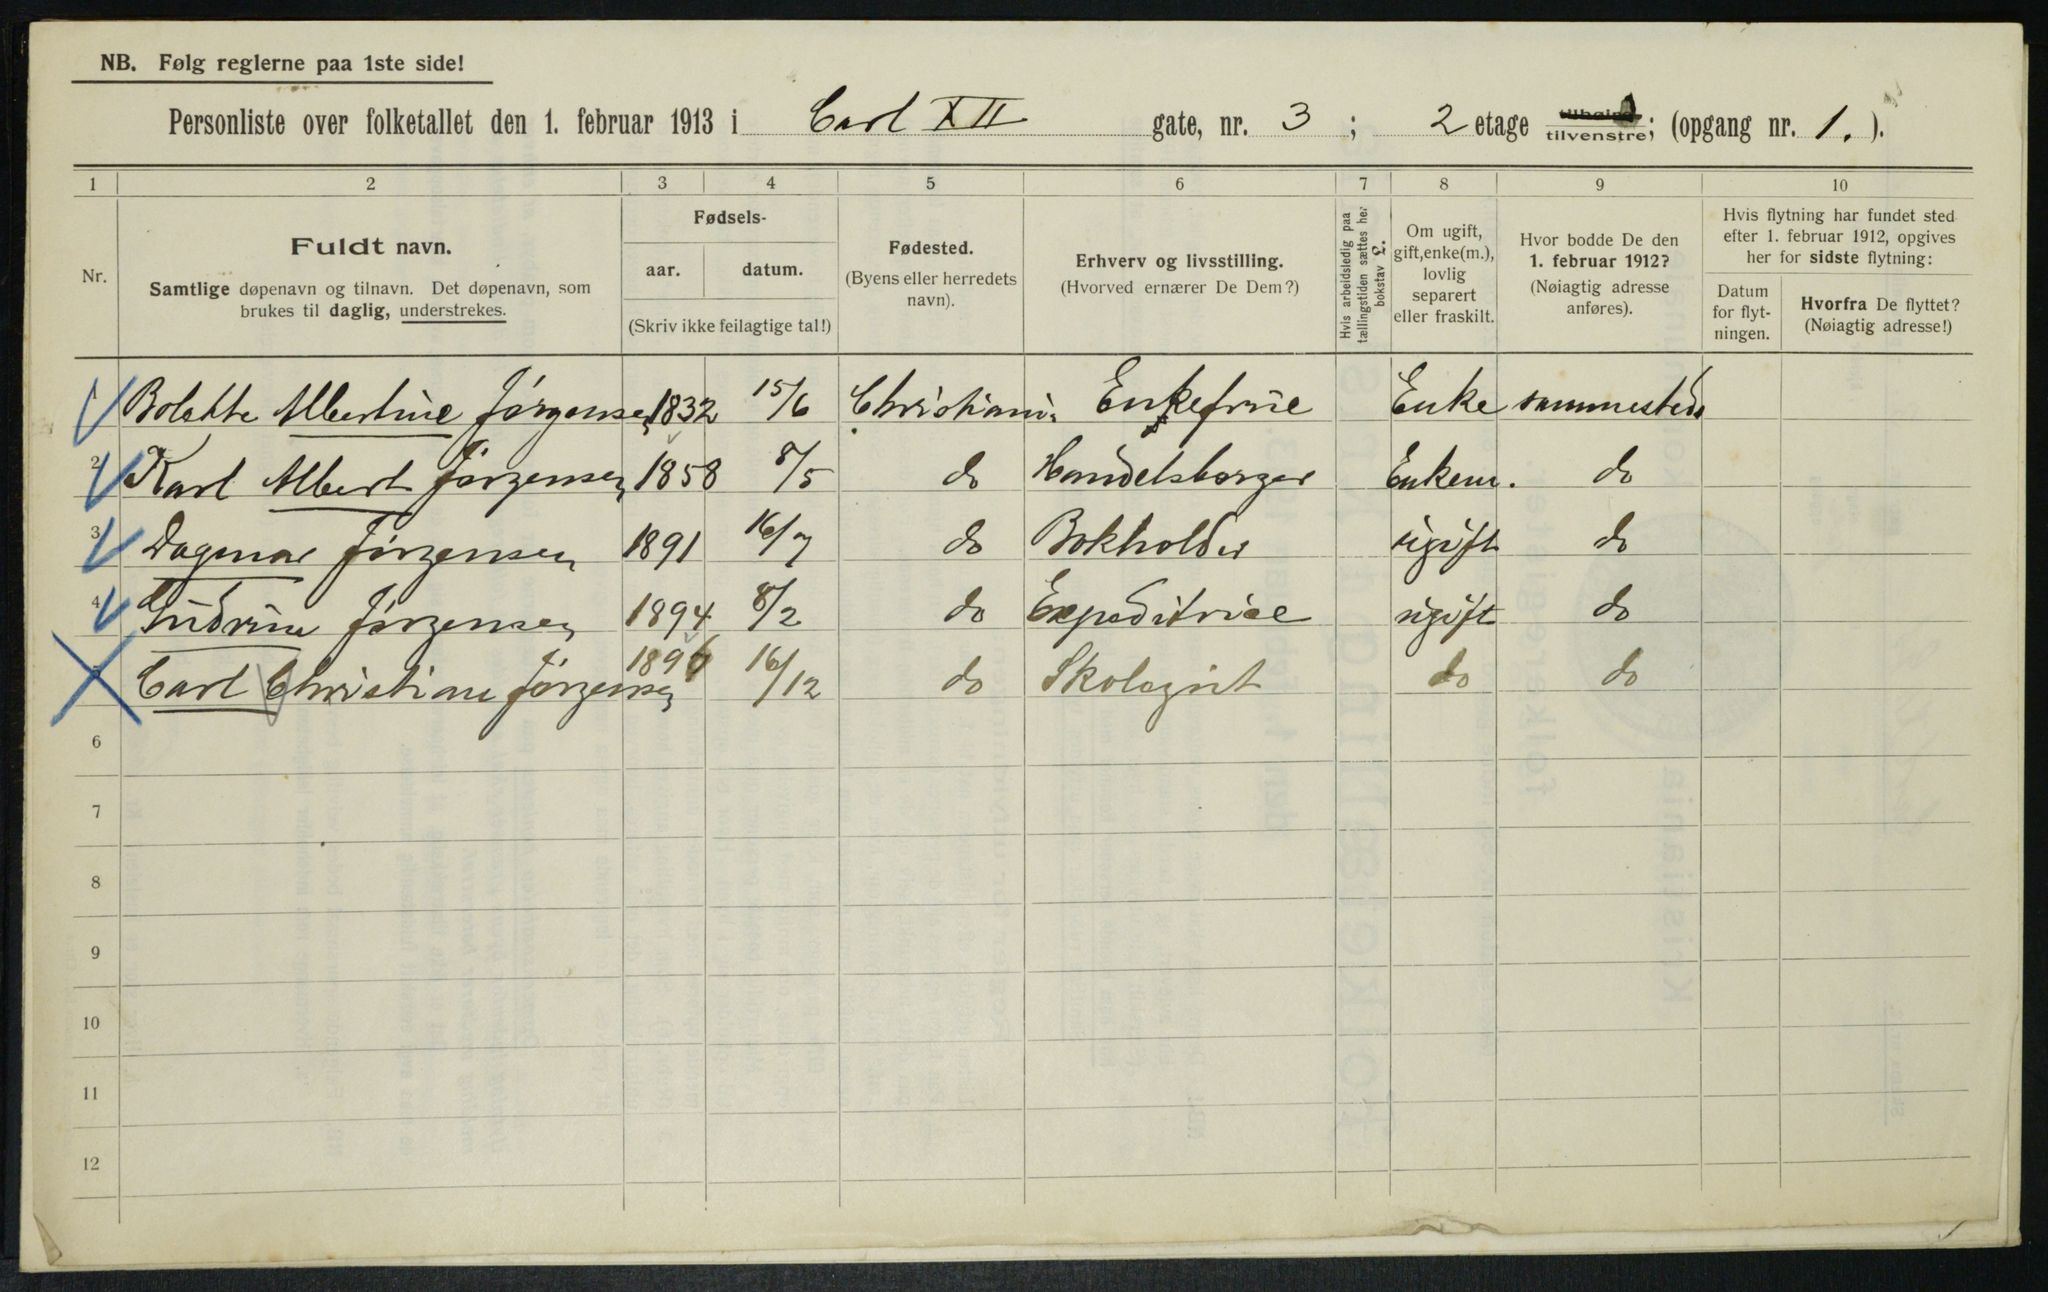 NB. Følg reglerne paa 1ste side!
Personliste over folketallet den 1. februar 1913 i Carl XII gate, nr. 3 ; 2 etage tilhøire tilvenstre; (opgang nr. 1. ).
1 2 3 4 5 6 7 8 9 10
Nr.
Fuldt navn.
Samtlige døpenavn og tilnavn. Det døpenavn, som
brukes til daglig, understrekes.
Fødsels-
aar. datum.
(Skriv ikke feilagtige tal!)
Fødested.
(Byens eller herredets
navn).
Erhverv og livsstilling.
(Hvorved ernærer De Dem?)
Hvis arbeidsledig paa
tællingstiden sættes her
bokstav L.
Om ugift,
gift, enke(m.),
lovlig
separert
eller fraskilt.
Hvor bodde De den
1. februar 1912?
(Nøiagtig adresse
anføres).
Hvis flytning har fundet sted
efter 1. februar 1912, opgives
her for sidste flytning:
Datum
for flyt-
ningen.
Hvorfra De flyttet?
(Nøiagtig adresse!)
1 Bolette Albertine Jørgensen 1832 15/6 Christiania Enkefrue Enke sammesteds
2 Karl Albert Jørgensen 1858 8/5 do Handelsborger Enkem. do
3 Dagmar Jørgensen 1891 16/7 do Bokholder ugift do
4 Gudrun Jørgensen 1894 8/2 do Expeditrice ugift do
5 Carl Christian Jørgensen 1896 16/12 do Skolegut do do
6
7
8
9
10
11
12